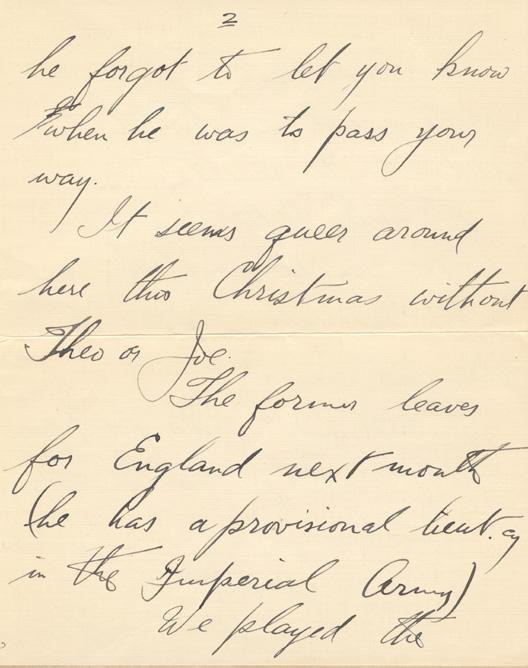 2
he forgot to let you know
when he was to pass your
way.
It seems queer around
here this Christmas without
Theo or Joe.
The former leaves
for England next month
(he has a provisional lieut.cy
in the Imperial Army)
We played the